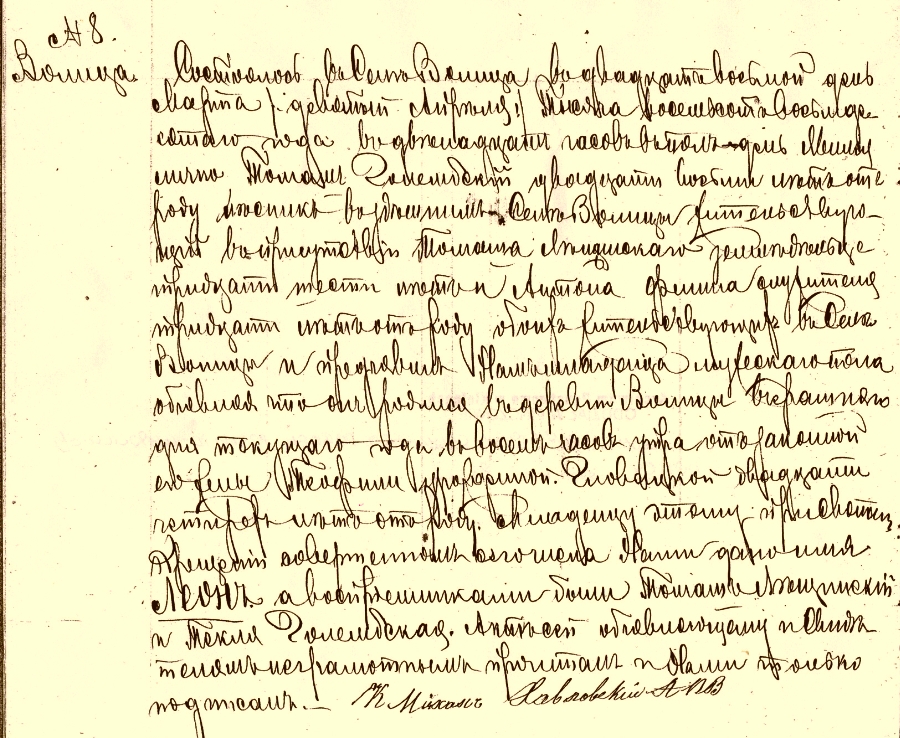 № 8.
Волица.
Состоялось въ Селѣ Волица въ двадцать восьмой день
Марта /: девятый Апрѣля :/ Тысяча восемьсотъ восьмде-
сятаго года въ двенадцать часовъ въ полъ-день. Явился
лично Томашъ Голембскій двадцати восьми лѣтъ отъ
роду въ здѣшнимъ Селѣ Волицы жительствую-
щій въ присутствіи Томаша земледѣльца
тридцати шести лѣтъ и Антона служителя
тридцати лѣтъ отъ роду обоихъ жительствующихъ въ Селѣ
Волицы и предъявилъ Намъ младенца мужескаго пола
объявляя что онъ родился въ деревни Волицы вчерашняго
дня текущаго года въ восемь часовъ утра отъ законной
его жены Теофили урожденной Гловацкой двадцати
четырехъ лѣтъ отъ роду. Младенцу этому при Святомъ
Крещеніи совершенномъ сего числа Нами дано имя
Леонъ а воспріемниками были Томашъ
и Текля Голембская. Актъ сей объявляющему и Свидѣ-
телямъ неграмотнымъ прочитанъ и Нами только
подписанъ. — К Михалъ Павловскій А В В